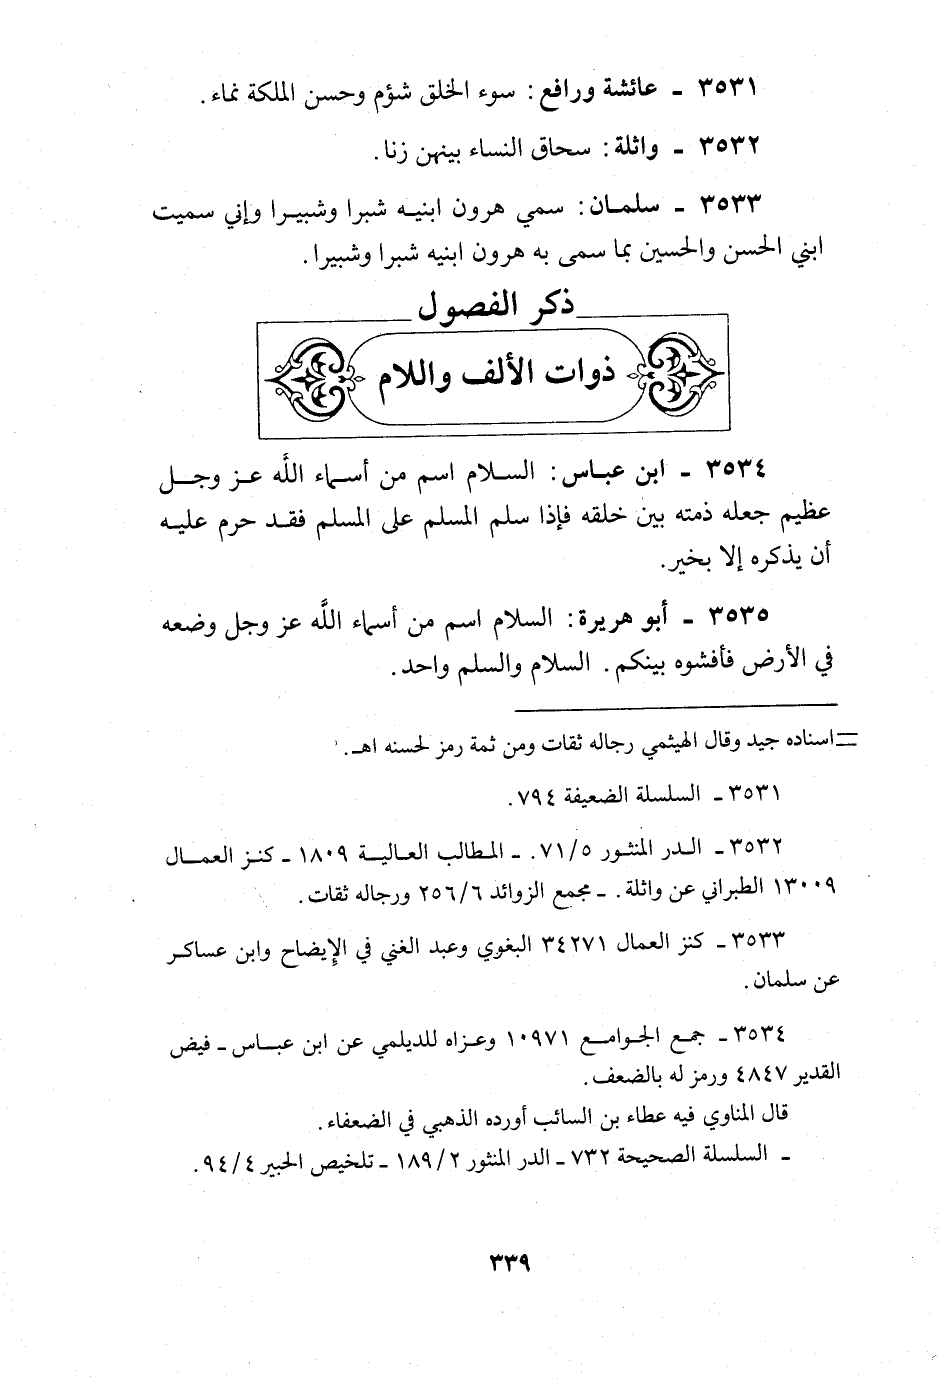 ٣٥٣١ ـ عائشة ورافع: سوء الخلق شؤم وحسن الملكة نماء.
٣٥٣٢ ـ واثلة: سحاق النساء بينهن زنا.
٣٥٣٣ ـ سلمـان: سمي هرون ابنيـه شبرا وشبيـرا وإني سميت
ابني الحسن والحسين بما سمى به هرون ابنيه شبرا وشبيرا.
ذكر الفصول
ذوات الألف واللام
٣٥٣٤ ـ ابن عبـاس: السـلام اسم من أسـماء اللَّه عـز وجـل
عظيم جعله ذمته بين خلقه فإذا سلم المسلم على المسلم فقـد حرم عليـه
أن يذكره إلا بخير.
٣٥٣٥ ـ أبو هريرة: السلام اسم من أسماء اللَّه عز وجل وضعه
في الأرض فأفشوه بينكم. السلام والسلم واحد.
= اسناده جيد وقال الهيثمي رجاله ثقات ومن ثمة رمز لحسنه اهـ.
٣٥٣١ ـ السلسلة الضعيفة ٧٩٤.
٣٥٣٢ ـ الـدر المنثـور ٧١/٥. ـ المطالب العـاليـة ١٨٠٩ ـ كنـز العمـال
١٣٠٠٩ الطبراني عن واثلة. ـ مجمع الزوائد ٢٥٦/٦ ورجاله ثقات.
٣٥٣٣ ـ كنز العمال ٣٤٢٧١ البغوي وعبد الغني في الإيضاح وابن عساكـر
عن سلمان.
٣٥٣٤ ـ جمـع الجـوامـع ١٠٩٧١ وعـزاه للديلمي عن ابن عبـاس ـ فيض
القدير ٤٨٤٧ ورمز له بالضعف.
قال المناوي فيه عطاء بن السائب أورده الذهبي في الضعفاء.
ـ السلسلة الصحيحة ٧٣٢ ـ الدر المنثور ١٨٩/٢ ـ تلخيص الحبير ٩٤/٤.
٣٣٩